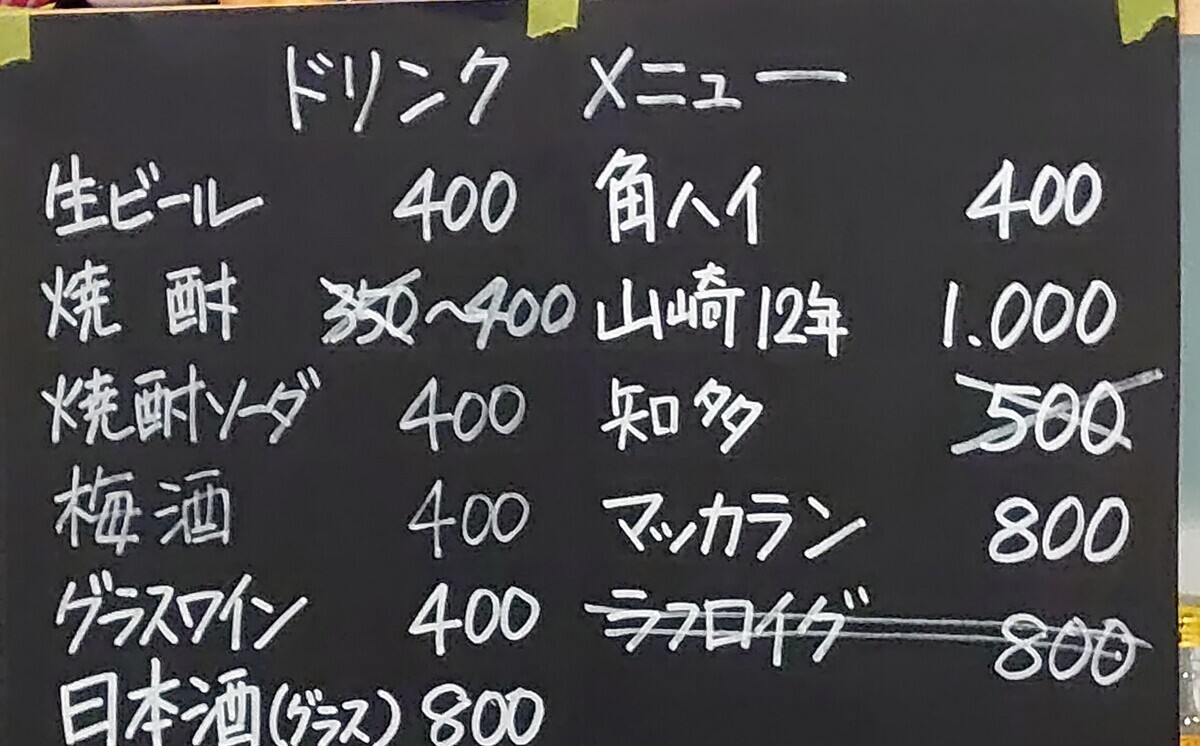 ドリンク メニュー
生ビール 400
焼酎 350~400
焼酎ソーダ 400
梅酒 400
グラスワイン 400
日本酒(グラス) 800
角ハイ 400
山崎12年 1.000
知多 500
マッカラン 800
ラフロイグ 800